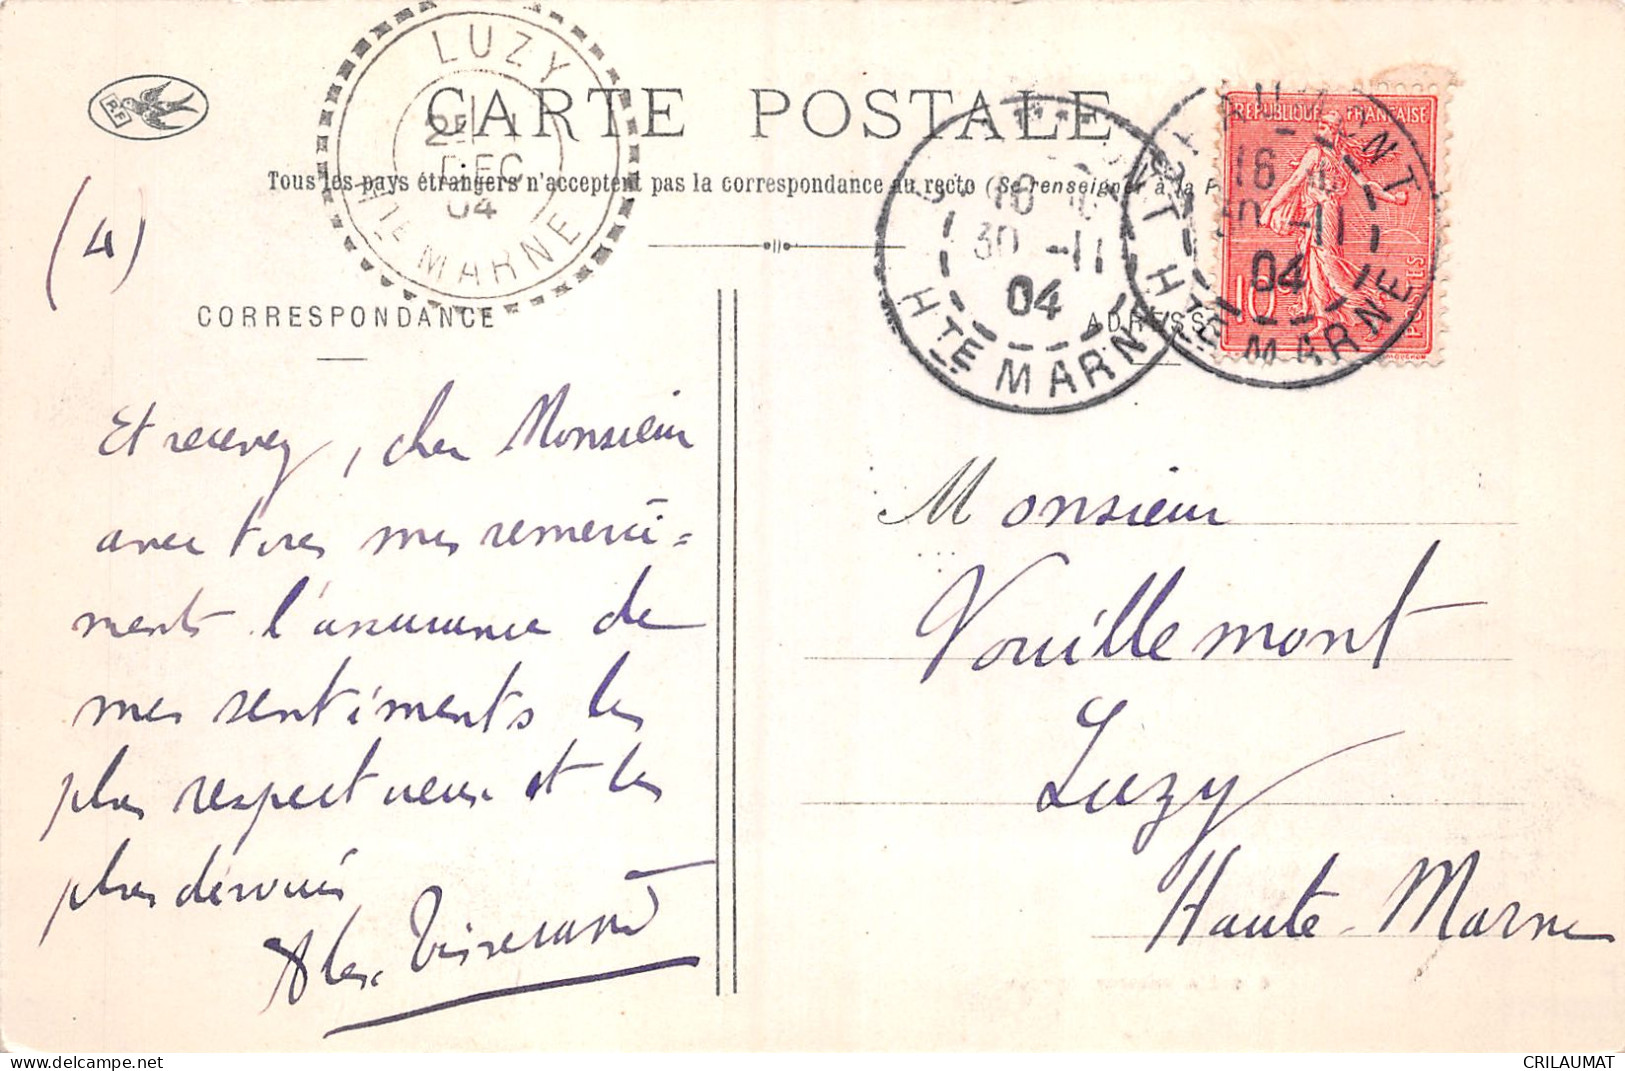 LUZY
DEC
04
Hte MARNE
B.F
CARTE POSTALE
Tous les pays étrangers n'acceptent pas la correspondance au recto (Se renseigner à la P
(4)
CORRESPONDANCE
ADRESSE
REPUBLIQUE FRANÇAISE
10c
POSTES
CHAUMONT
16
30 -11
04
Hte MARNE
16
30 -11
04
Hte MARNE
Et recevez, cher Monsieur
avec tous mes remerci=
ments l'assurance de
mes sentiments les
plus respectueux et les
plus dévoués
Alex.
Monsieur
Vouillemont
Luzy
Haute-Marne
CRILAUMAT